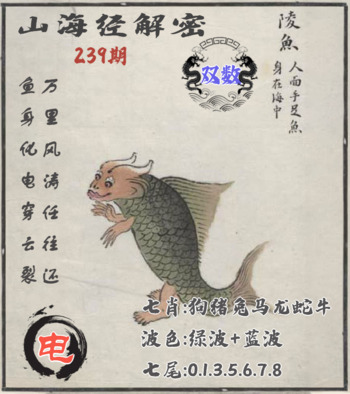 山海经解密
239期
双数
陵魚
人面手足魚
身在海中
万里风涛任往还
鱼身化电穿云裂
电
七肖:狗猪兔马龙蛇牛
波色:绿波+蓝波
七尾:0.1.3.5.6.7.8